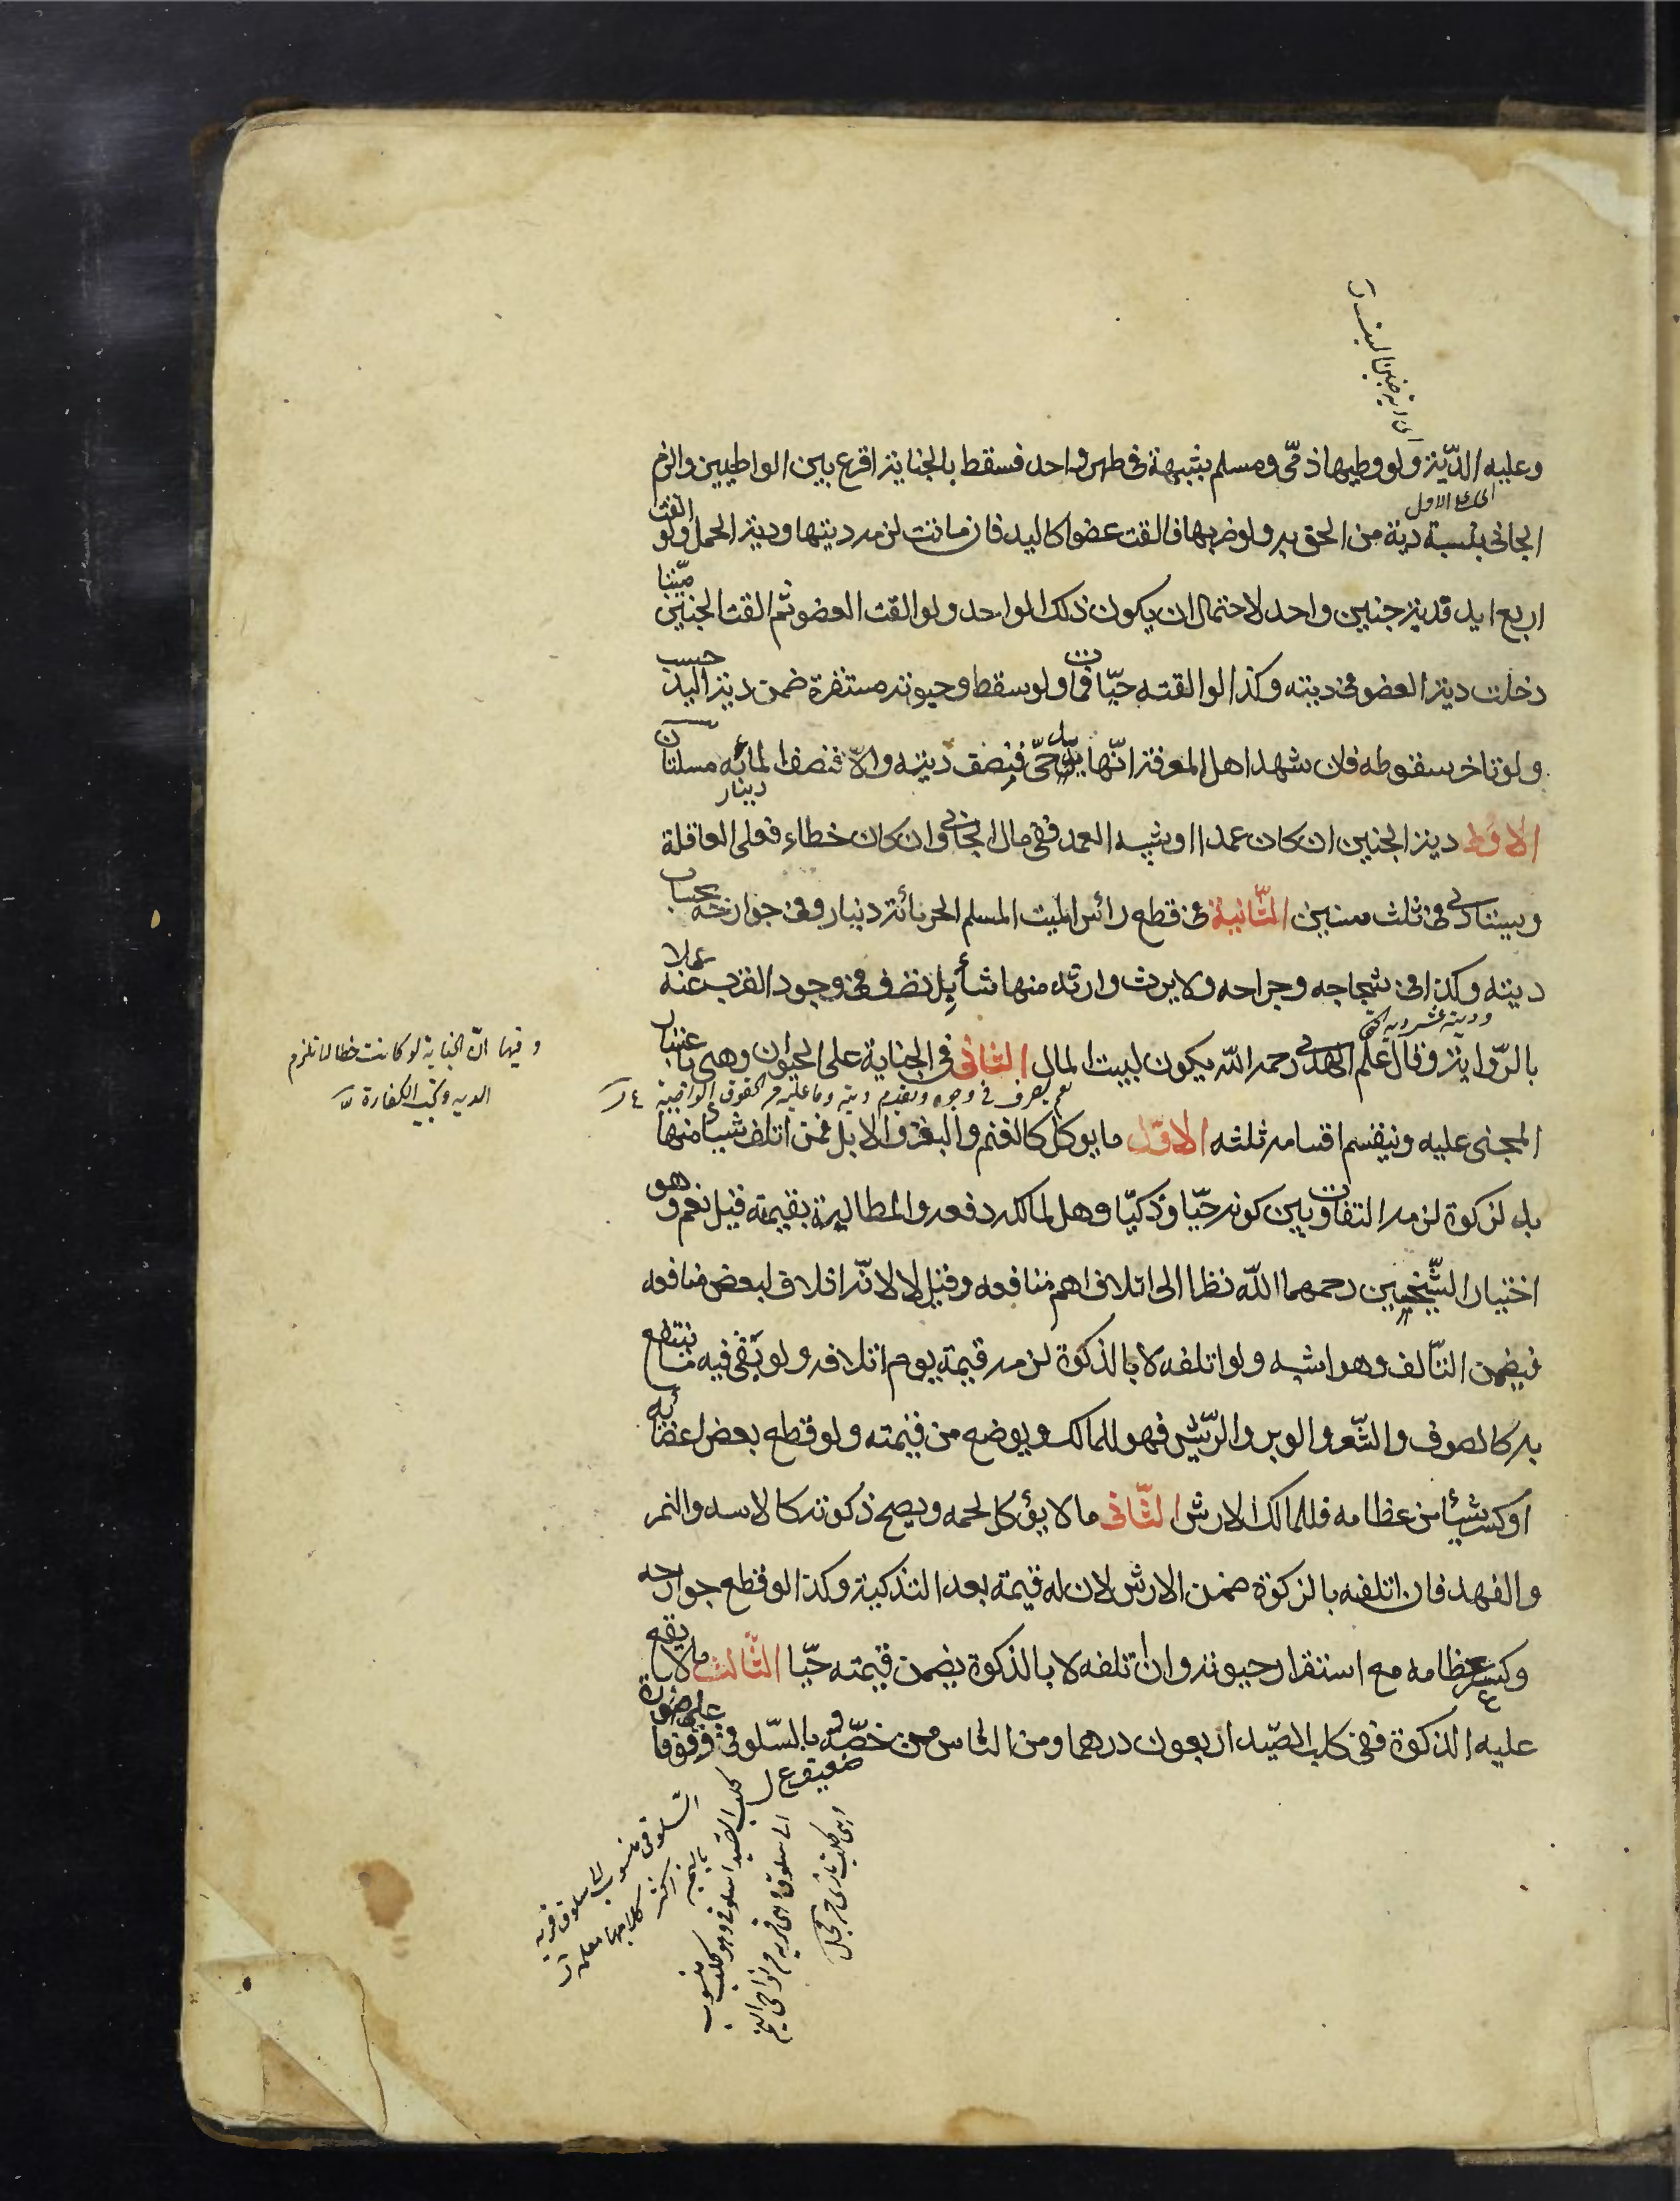 وعليه الدّية ولو وطيها ذمّى ومسلم بشبهة فى طهر واحد فسقط بالجناية اقرع بين الواطيين والزم
الجانى بنسبة دية من الحق به ولو ضربها فالقت عضوا كاليد فان ماتت لزمه ديتها ودية الحمل ولو القت
اربع ايد فدية جنين واحد لاحتمال ان يكون ذلك لواحد ولو القت العضو ثم القت الجنين ميّتا
دخلت دية العضو فى ديته وكذا لو القته حيّا فمات ولو سقط وحيوته مستقرة ضمن دية اليد حسب
ولو تاخر سقوطه فان شهد اهل المعرفة انّها يد حىّ فنصف ديته والاّ فنصف المائه مسئلتان
دينار
الاولى دية الجنين ان كان عمدا او شبيه العمد ففى مال الجانى وان كان خطاء فعلى العاقلة
ويستادى فى ثلث سنين الثّانية فى قطع رأس الميت المسلم الحر مائة دينار وفى جوارحه بحساب
ديته وكذا فى شجاجه وجراحه ولا يرث وارثه منها شيأ بل تصرف فى وجوه القرب عنه عملا
بالرّواية وقال علم الهدى رحمه الله يكون لبيت المال الثانى فى الجناية على الحيوان وهى باعتبار
المجنى عليه وينقسم اقسامه ثلثه الاوّل ما يوكل كالغنم والبقر والابل فمن اتلف شيئا منها
بالذكوة لزمه التفاوت بين كونه حيّا وذكيّا وهل لمالكه دفعه والمطالبة بقيمته قيل نعم وهو
اختيار الشّيخين رحمهما الله نظرا الى اتلاف اهم منافعه وقيل لا لانّه اتلاف لبعض منافعه
فيضمن التّالف وهو اشبه ولو اتلفه لا بالذكوة لزمه قيمة يوم اتلافه ولو بقى فيه ما ينتفع
به كالصوف والشّعر والوبر والرّيش فهو للمالك ويوضع من قيمته ولو قطع بعض اعضائه
او كسر شيئا من عظامه فللمالك الارش الثّانى ما لا يؤكل لحمه ويصح ذكوته كالاسد والنمر
والفهد فان اتلفه بالذكوة ضمن الارش لان له قيمة بعد التذكية وكذا لو قطع جوارحه
وكسر عظامه مع استقرار حيوته وان اتلفه لا بالذكوة يضمن قيمته حيّا الثّالث ما لا يقع
عليه الذكوة ففى كلب الصّيد اربعون درهما ومن الناس من خصّه بالسّلوقى وقوفا على صورة
وفيها انّ الجناية لو كانت خطا لم تلزم
الديه وتجب الكفارة
السلوقى منسوب الى سلوق قريه
باليمن اكثر كلابها معلمة
كلب الصيد السلوقى وهو كلب منسوب
الى سلوق وهى قريه من نواحى اليمن